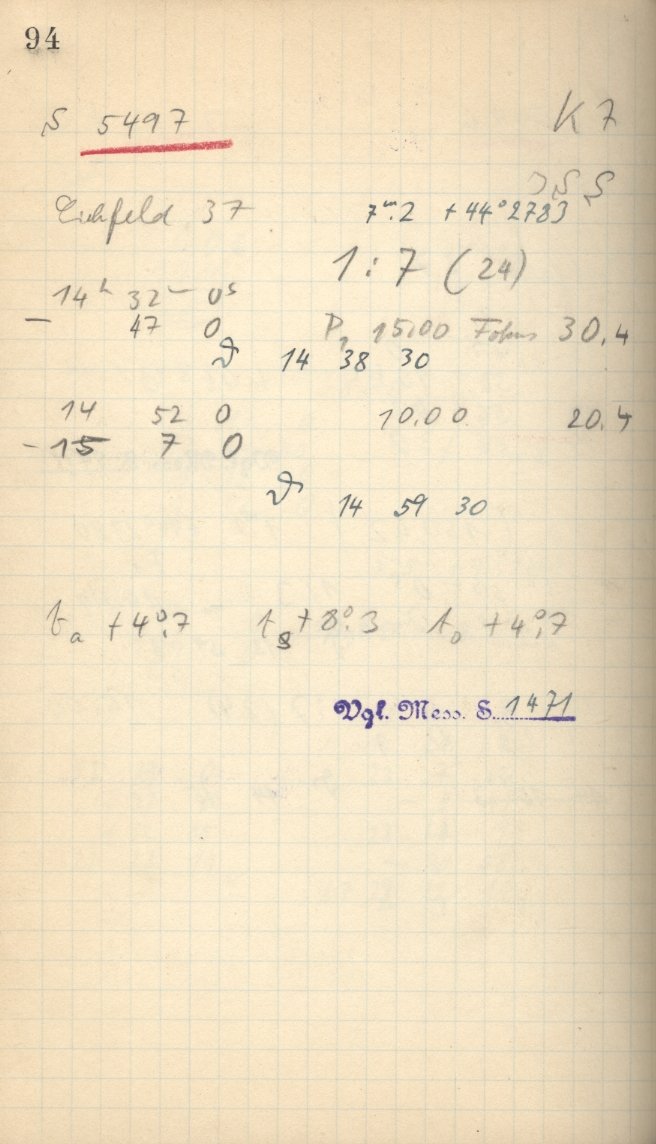 94
S 5497 K 7
Eichfeld 37 7ᵐ.2 +44°2783
1:7 (24)
14ʰ 32ᵐ 0ˢ
— 47 0 P, 15.00 Fokus 30.4
ϑ 14 38 30
14 52 0 10.00 20.4
- 15 7 0
ϑ 14 59 30
tₐ +4°.7 +8°.3 +4°.7
Vgl. Mess. S. 1471